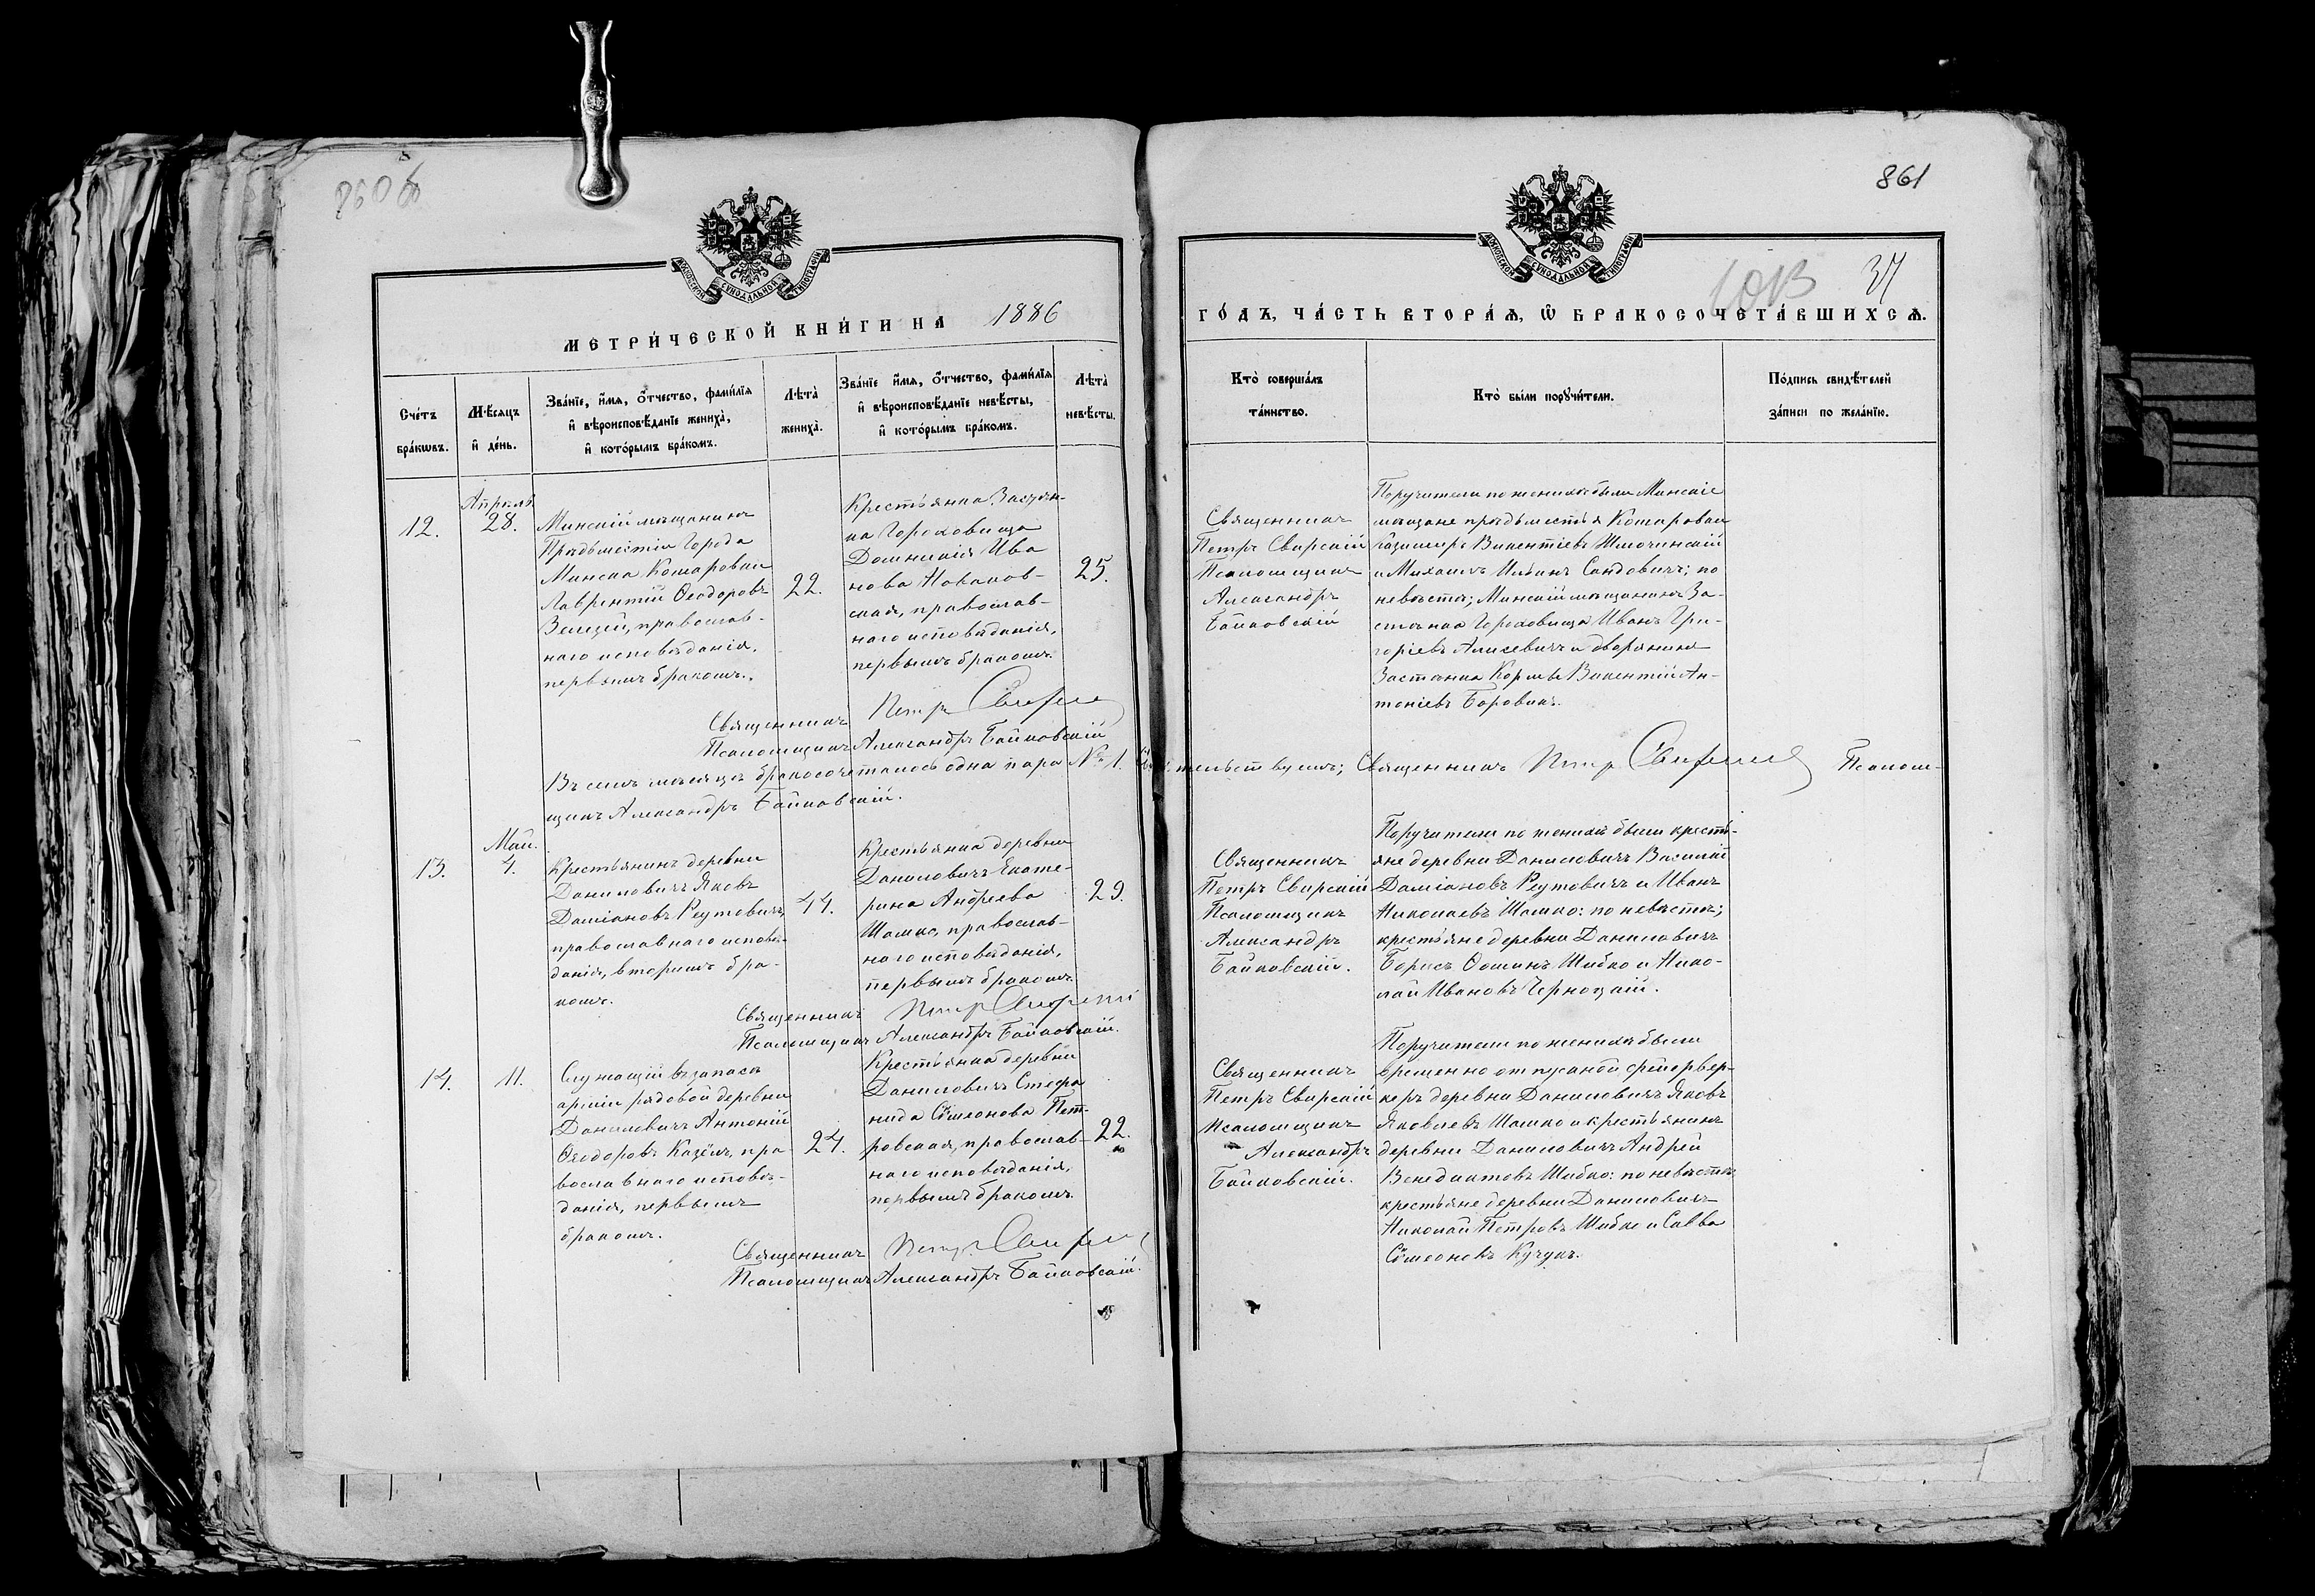 860об
861
37
МОСКОВСКОЙ СУНОДАЛЬНОЙ ТИПОГРАФІИ
МЕТРИ́ЧЕСКОЙ КНИ́ГИ НА 1886
МОСКОВСКОЙ СУНОДАЛЬНОЙ ТИПОГРАФІИ
ГО́ДЪ, ЧА́СТЬ ВТОРА́Ѧ, Ѽ БРАКОСОЧЕТА́ВШИХСѦ.
Сче́тъ
бра́кωвъ.
Мѣ́сяцъ
и҆ де́нь.
Зва́нїе, и҆́мѧ, ѻ҆́тчество, фами́лїѧ
и҆ вѣроисповѣ́данїе жениха̀,
и҆ кото́рымъ бра́комъ.
Лѣ́та̀
жениха̀.
Зва́нїе и҆́мѧ, ѻ҆́тчество, фами́лїѧ
и҆ вѣроисповѣ́данїе невѣ́сты,
и҆ кото́рымъ бра́комъ.
Лѣ́та̀
невѣ́сты.
Кто̀ соверша́лъ
та́инство.
Кто̀ бы́ли порꙋчи́тели.
По́дпись свидѣ́телей
за́писи по жела́нїю.
12.
Апрѣль
28.
Минскій мѣщанинъ
Предмѣстія Города
Минска Комаровки
Лаврентій Ѳеодоровъ
Велцей, православ-
наго исповѣданія,
первымъ бракомъ.
22.
Крестьянка Застѣн-
ка Городовища
Доминикія Ива
нова Новаков-
ская, православ-
наго исповѣданія,
первымъ бракомъ.
25.
Священникъ
Петръ Свирскій
Псаломщикъ
Александръ
Байковскій
Поручители по женихѣ были Минскіе
мѣщане предмѣстья Комаровки
Казимиръ Викентіевъ
и Михаилъ Ивановъ Сандовичъ; по
невѣстѣ; Минскій мѣщанинъ За-
стѣнка Городовища Иванъ Гри-
горіевъ Алисевичъ и дворянинъ
Застѣнка Викентій Ан-
тоніевъ Боровикъ.
Священникъ Петръ Свирскій
Псаломщикъ Александръ Байковскій
Въ семъ мѣсяцѣ бракосочеталось одна пара № 1. Свидѣтельствуемъ; Священникъ Петръ Свирскій Псалом-
щикъ Александръ Байковскій.
13.
Май.
4.
Крестьянинъ деревни
Даниловичъ Яковъ
Даміановъ Реутовичъ,
православнаго исповѣ-
данія, вторымъ бра-
комъ.
44.
Крестьянка деревни
Даниловичъ Екате-
рина Андреева
Шашко, православ-
наго исповѣданія,
первымъ бракомъ.
29.
Священникъ
Петръ Свирскій
Псаломщикъ
Александръ
Байковскій.
Поручители по женихѣ были кресть-
яне деревни Даниловичъ Василій
Даміановъ Реутовичъ и Иванъ
Николаевъ Шашко: по невѣстѣ;
крестьяне деревни Даниловичъ
Борисъ Ѳоминъ Шибко и Нико-
лай Ивановъ Чернецкій.
Священникъ Петръ Свирскій
Псаломщикъ Александръ Байковскій.
14.
11.
Служащій въ запасѣ
арміи рядовой деревни
Даниловичъ Антоній
Ѳеодоровъ Казёлъ, пра-
вославнаго исповѣ-
данія, первымъ
бракомъ.
24.
Крестьянка деревни
Даниловичъ Стефа
нида Сѵмеонова Пет-
ровская, православ-
наго исповѣданія,
первымъ бракомъ.
22.
Священникъ
Петръ Свирскій
Псаломщикъ
Александръ
Байковскій.
Поручители по женихѣ были
временно отпускной фейервер-
керъ деревни Даниловичъ Яковъ
Яковлевъ Шашко и крестьянинъ
деревни Даниловичъ Андрей
Венедиктовъ Шибко: по невѣстѣ
крестьяне деревни Даниловичъ
Николай Петровъ Шибко и Савва
Сѵмеоновъ Кучукъ.
Священникъ Петръ Свирскій
Псаломщикъ Александръ Байковскій.